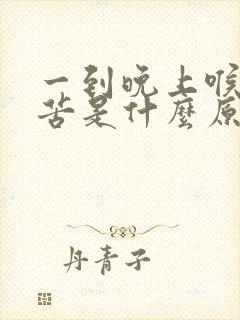 一到晚上喉
苦是什麼原
丹青子